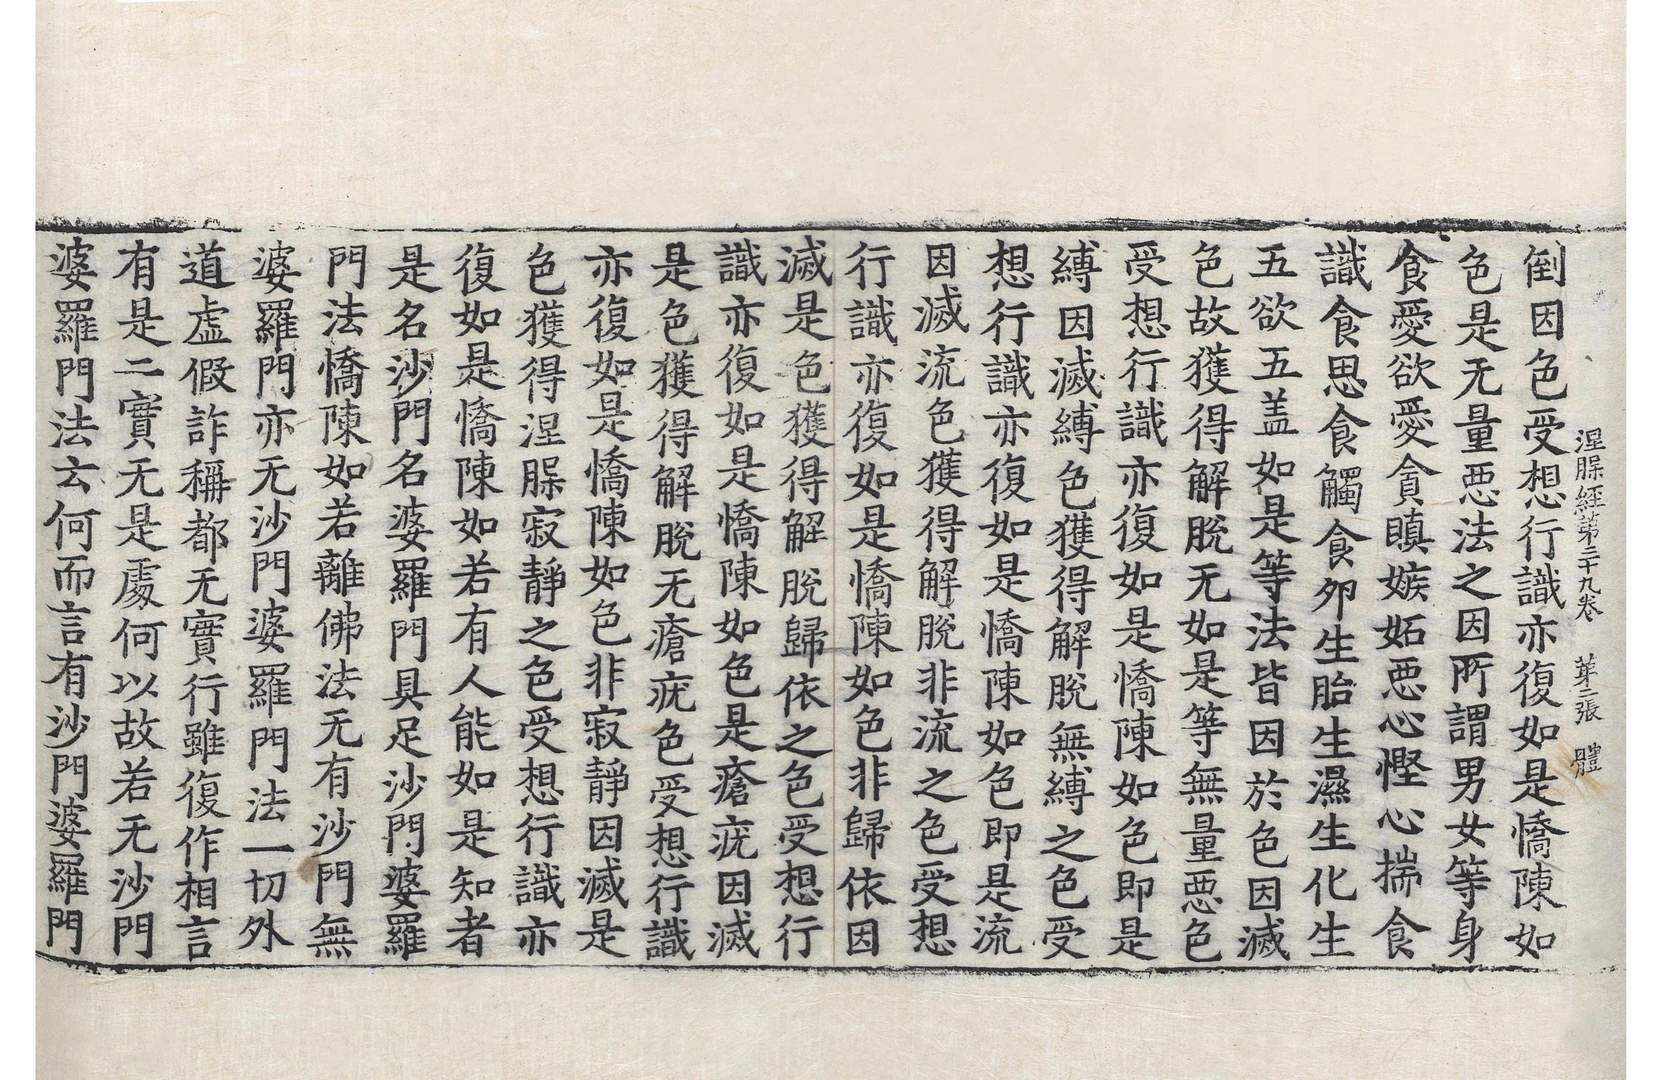 涅槃經第三十九卷　第二張　體
倒因色受想行識亦復如是憍陳如
色是无量惡法之因所謂男女等身
食愛欲愛貪瞋嫉妬惡心慳心揣食
識食思食觸食夘生胎生濕生化生
五欲五盖如是等法皆因於色因滅
色故獲得解脫无如是等無量惡色
受想行識亦復如是憍陳如色即是
縛因滅縛色獲得解脫無縛之色受
想行識亦復如是憍陳如色即是流
因滅流色獲得解脫非流之色受想
行識亦復如是憍陳如色非歸依因
滅是色獲得解脫歸依之色受想行
識亦復如是憍陳如色是瘡疣因滅
是色獲得解脫无瘡疣色受想行識
亦復如是憍陳如色非寂靜因滅是
色獲得涅槃寂靜之色受想行識亦
復如是憍陳如若有人能如是知者
是名沙門名婆羅門具足沙門婆羅
門法憍陳如若離佛法无有沙門無
婆羅門亦无沙門婆羅門法一切外
道虛假詐稱都无實行雖復作相言
有是二實无是處何以故若无沙門
婆羅門法云何而言有沙門婆羅門